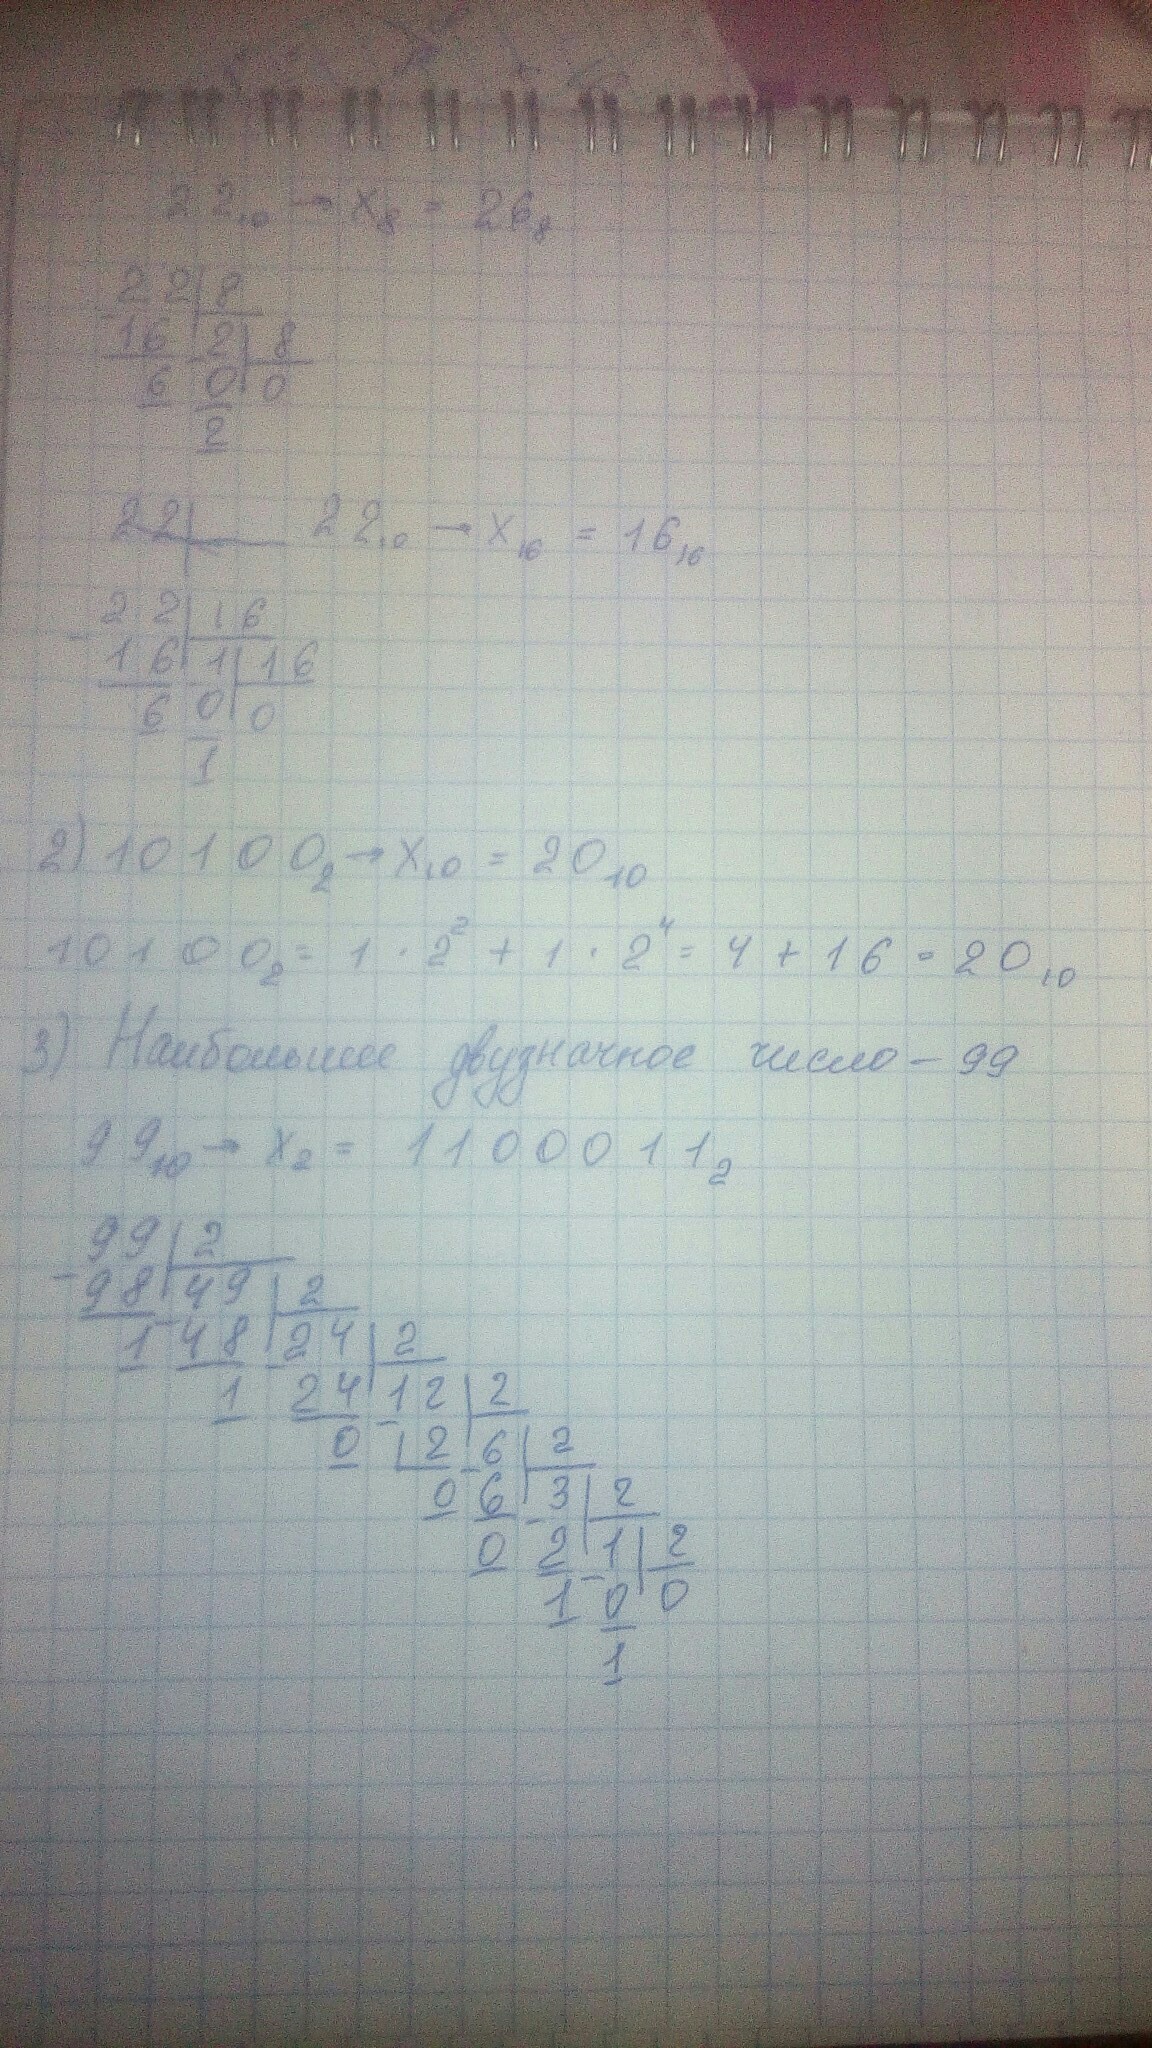 22₁₀ → X₈ = 26₈
22 8
- 16 2 8
6 0 0
2
22 22₁₀ → X₁₆ = 16₁₆
22 16
- 16 1 16
6 0 0
1
2) 10100₂ → X₁₀ = 20₁₀
10100₂ = 1 · 2² + 1 · 2⁴ = 4 + 16 = 20₁₀
3) Наибольшее двузначное число – 99
99₁₀ → X₂ = 1100011₂
99 2
- 98 - 49 2
1 48 - 24 2
1 24 - 12 2
0 12 - 6 2
0 6 - 3 2
0 2 - 1 2
1 0 0
1